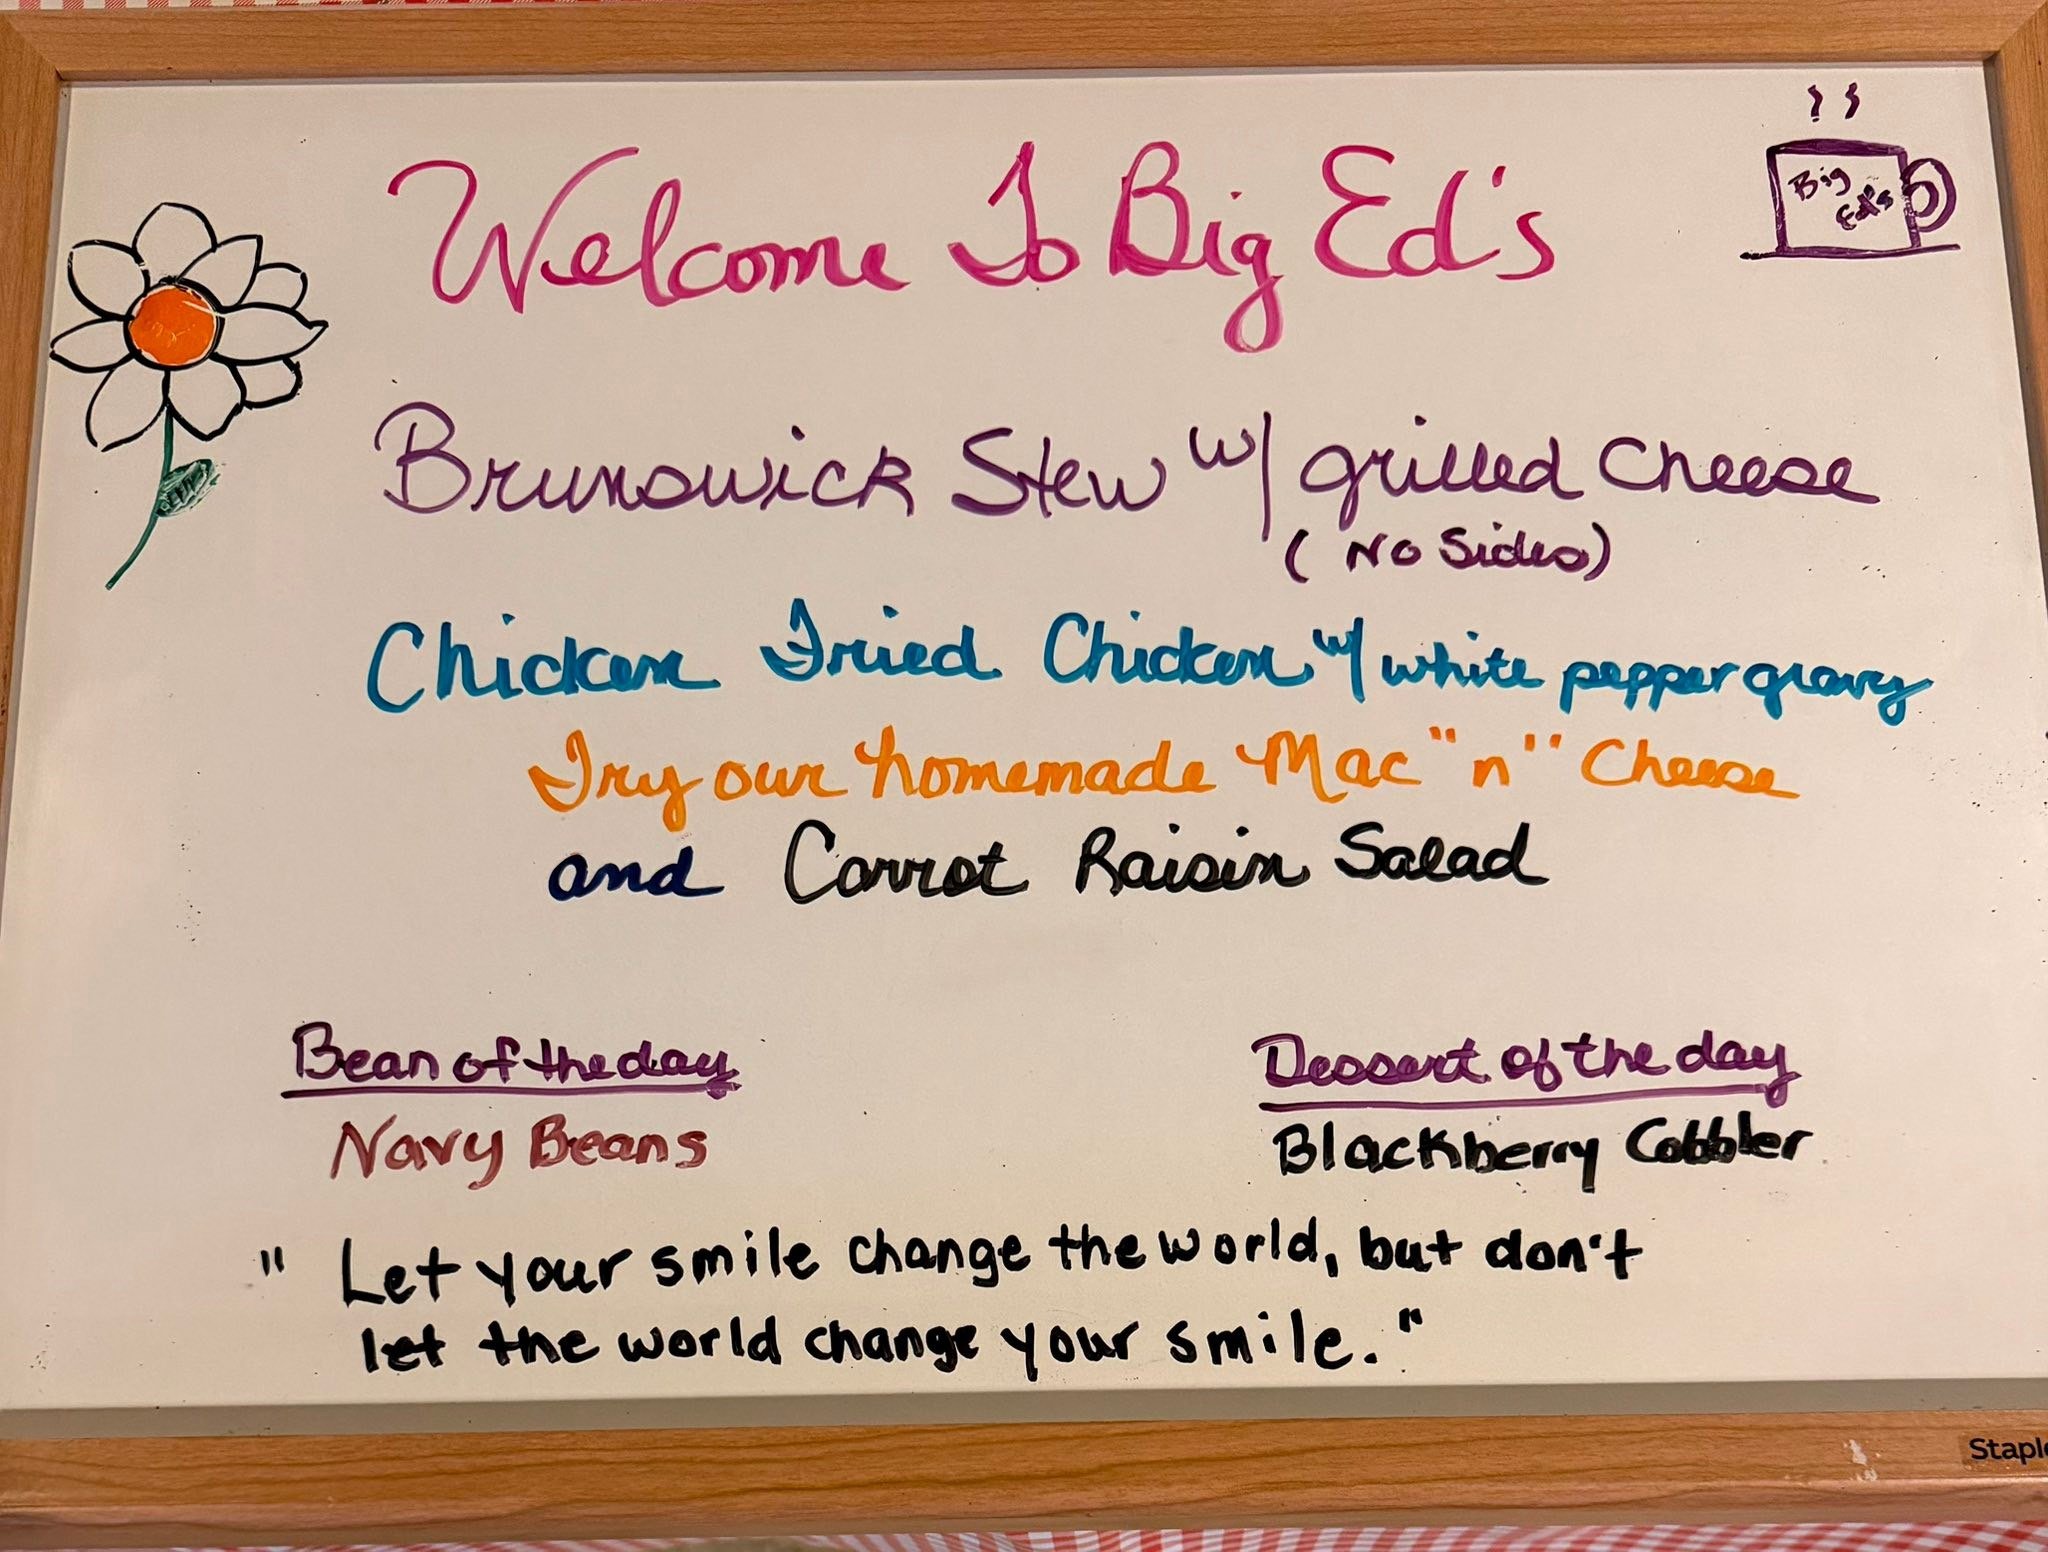 Welcome To Big Ed's
Big
Ed's
Brunswick Stew w/ grilled Cheese
(No Sides)
Chicken Fried Chicken w/ white pepper gravy
Try our homemade Mac "n" Cheese
and Carrot Raisin Salad
Bean of the day
Navy Beans
Dessert of the day
Blackberry Cobbler
" Let your smile change the world, but don't
let the world change your smile."